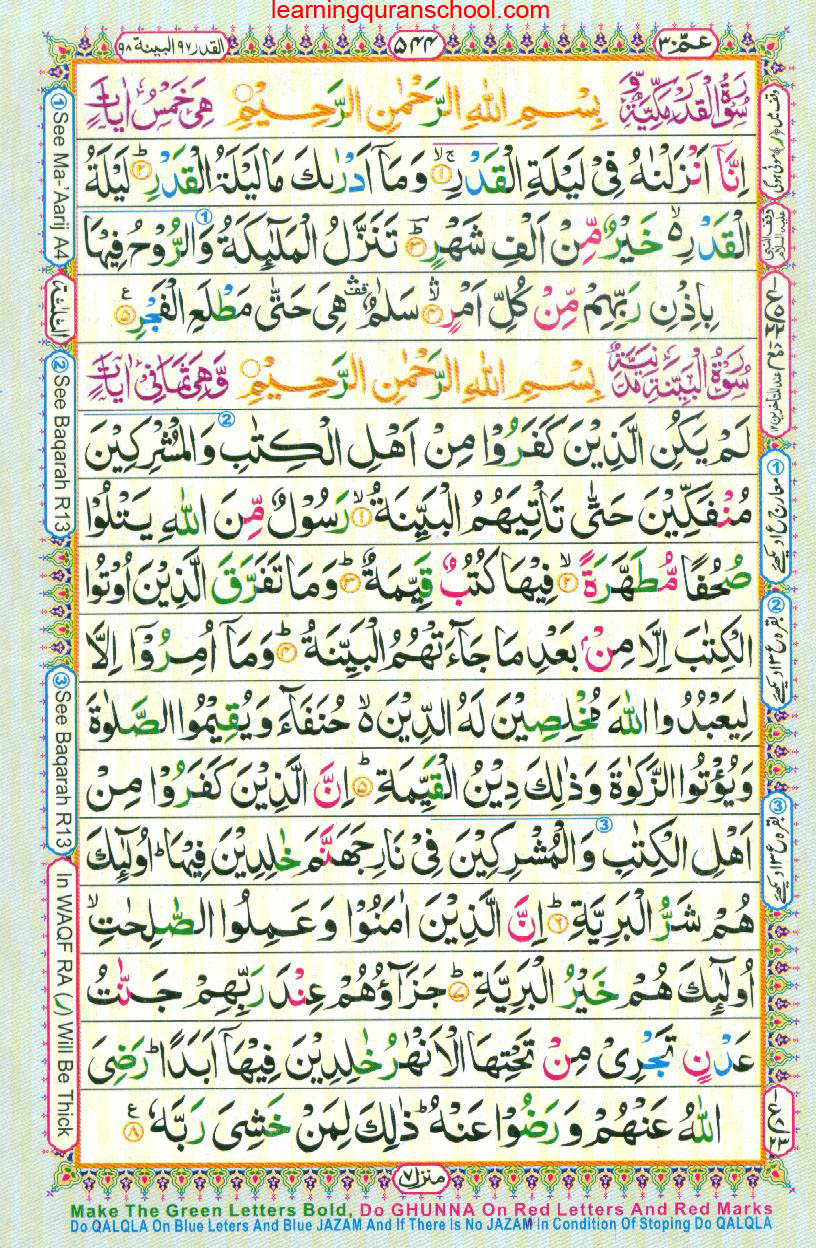 learningquranschool.com
عمّ ۳۰
۵۴۴
القدر ۹۷ البينة ۹۸
سُوْرَةُ الْقَدْرِ مَكِّيَّةٌ وَّ بِسْمِ اللهِ الرَّحْمٰنِ الرَّحِيْمِ هِيَ خَمْسُ اٰيَاتٍ
اِنَّاۤ اَنْزَلْنٰهُ فِيْ لَيْلَةِ الْقَدْرِ ۱ وَمَاۤ اَدْرٰىكَ مَا لَيْلَةُ الْقَدْرِ ۲ لَيْلَةُ
الْقَدْرِ ۙ خَيْرٌ مِّنْ اَلْفِ شَهْرٍ ۳ تَنَزَّلُ الْمَلٰٓئِكَةُ وَالرُّوْحُ فِيْهَا
بِاِذْنِ رَبِّهِمْ مِّنْ كُلِّ اَمْرٍ ۴ سَلٰمٌ هِيَ حَتّٰى مَطْلَعِ الْفَجْرِ ۵
سُوْرَةُ الْبَيِّنَةِ مَدَنِيَّةٌ بِسْمِ اللهِ الرَّحْمٰنِ الرَّحِيْمِ وَّهِيَ ثَمَانِيْ اٰيَاتٍ
لَمْ يَكُنِ الَّذِيْنَ كَفَرُوْا مِنْ اَهْلِ الْكِتٰبِ وَالْمُشْرِكِيْنَ
مُنْفَكِّيْنَ حَتّٰى تَاْتِيَهُمُ الْبَيِّنَةُ ۱ رَسُوْلٌ مِّنَ اللهِ يَتْلُوْا
صُحُفًا مُّطَهَّرَةً ۲ فِيْهَا كُتُبٌ قَيِّمَةٌ ۳ وَمَا تَفَرَّقَ الَّذِيْنَ اُوْتُوا
الْكِتٰبَ اِلَّا مِنْۢ بَعْدِ مَا جَآءَتْهُمُ الْبَيِّنَةُ ۴ وَمَاۤ اُمِرُوْۤا اِلَّا
لِيَعْبُدُوا اللهَ مُخْلِصِيْنَ لَهُ الدِّيْنَ ۙ حُنَفَآءَ وَيُقِيْمُوا الصَّلٰوةَ
وَيُؤْتُوا الزَّكٰوةَ وَذٰلِكَ دِيْنُ الْقَيِّمَةِ ۵ اِنَّ الَّذِيْنَ كَفَرُوْا مِنْ
اَهْلِ الْكِتٰبِ وَالْمُشْرِكِيْنَ فِيْ نَارِ جَهَنَّمَ خٰلِدِيْنَ فِيْهَا ؕ اُولٰٓئِكَ
هُمْ شَرُّ الْبَرِيَّةِ ۶ اِنَّ الَّذِيْنَ اٰمَنُوْا وَعَمِلُوا الصّٰلِحٰتِ ۙ
اُولٰٓئِكَ هُمْ خَيْرُ الْبَرِيَّةِ ۷ جَزَآؤُهُمْ عِنْدَ رَبِّهِمْ جَنّٰتُ
عَدْنٍ تَجْرِيْ مِنْ تَحْتِهَا الْاَنْهٰرُ خٰلِدِيْنَ فِيْهَاۤ اَبَدًا ؕ رَضِيَ
اللهُ عَنْهُمْ وَرَضُوْا عَنْهُ ؕ ذٰلِكَ لِمَنْ خَشِيَ رَبَّهٗ ۸
منزل ۷
① See Ma-'Aarij A4
الثلثة
② See Baqarah R13
③ See Baqarah R13
In WAQF RA (ر) Will Be Thick
① معارج ع ۱ دیکھئے
② بقرہ ع ۱۳ دیکھئے
③ بقرہ ع ۱۳ دیکھئے
Make The Green Letters Bold, Do GHUNNA On Red Letters And Red Marks
Do QALQLA On Blue Leters And Blue JAZAM And If There Is No JAZAM In Condition Of Stoping Do QALQLA